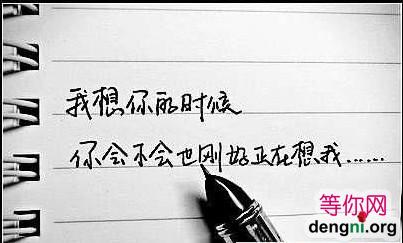 我想你的时候
你会不会也刚好正在想我……
等你网
dengni.org